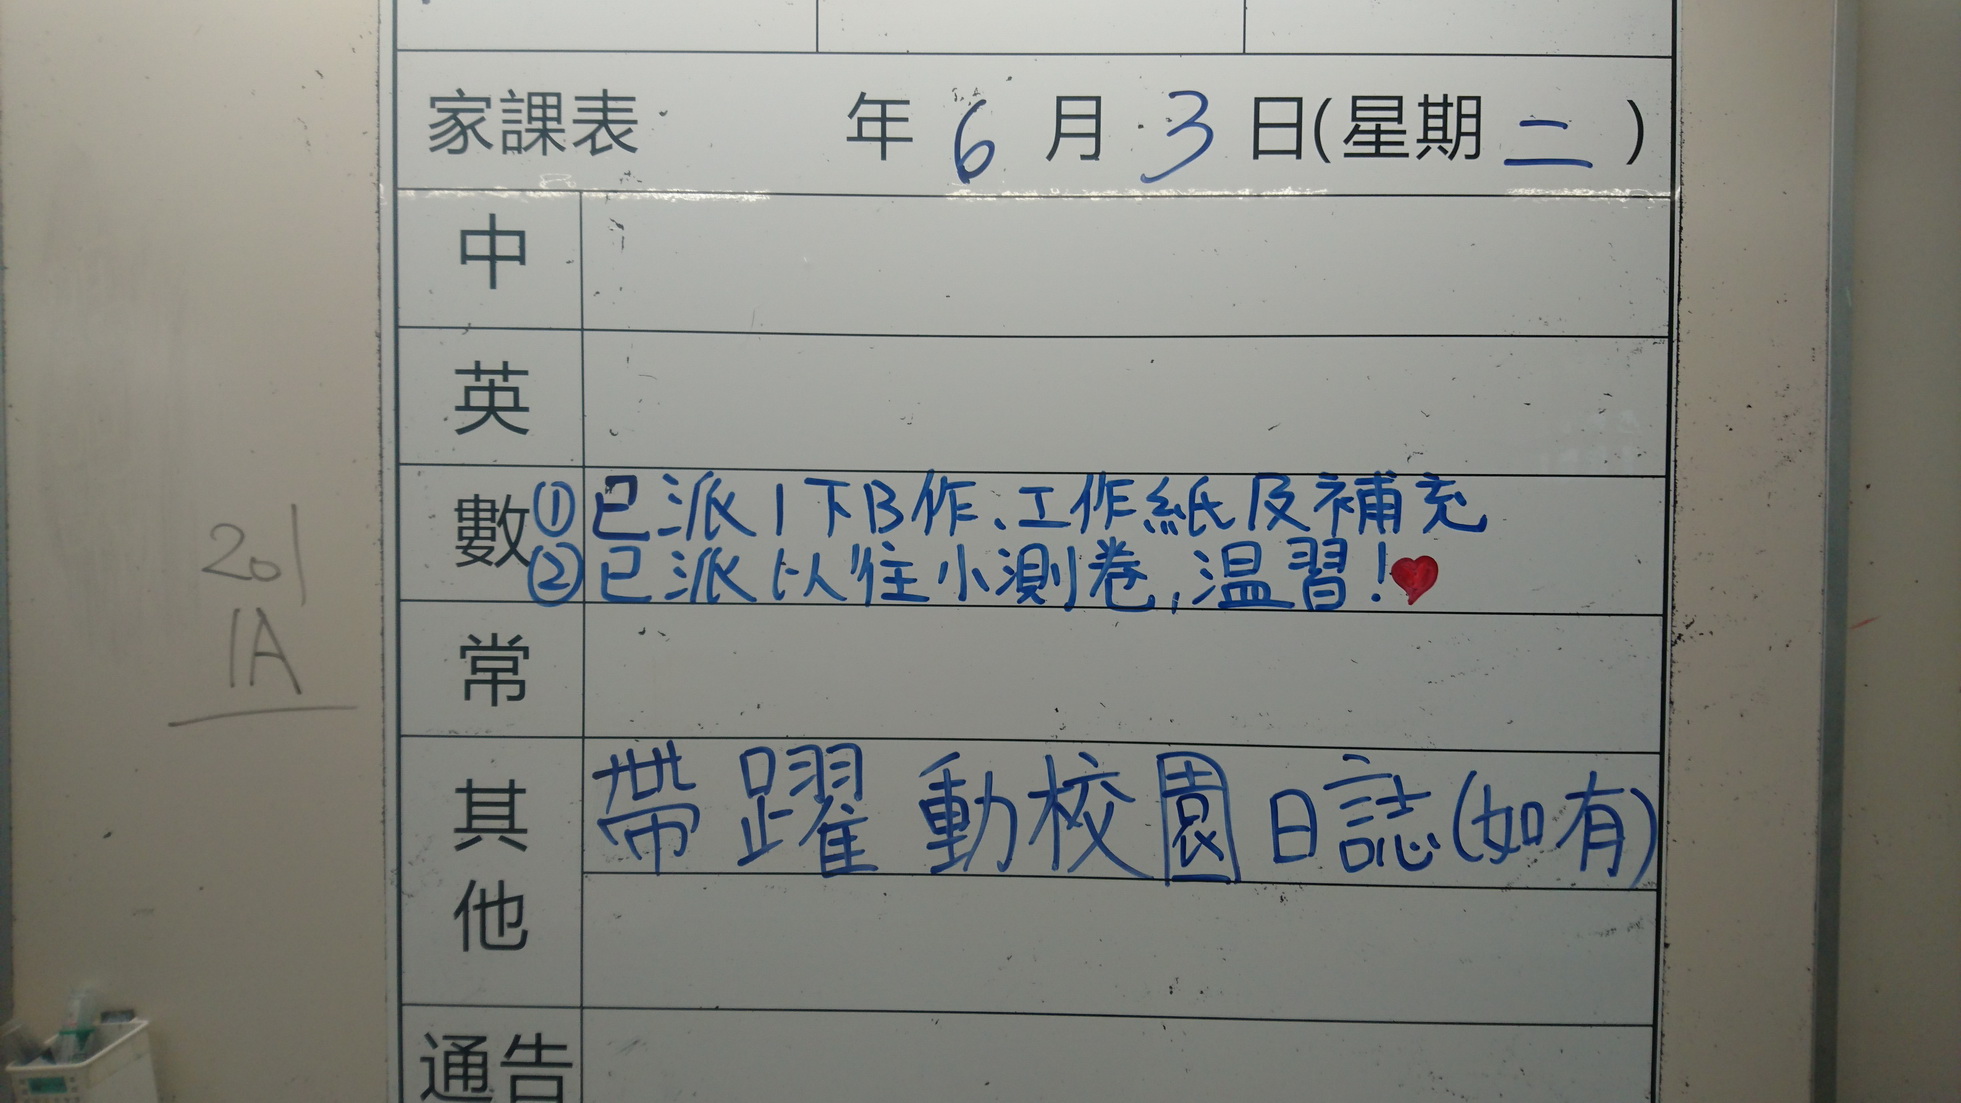 家課表 年 6 月 3 日(星期 二 )
中
英
數 ①已派1下B作、工作紙及補充
②已派以往小測卷,温習!
常
其他 帶躍動校園日誌(如有)
通告
201
1A